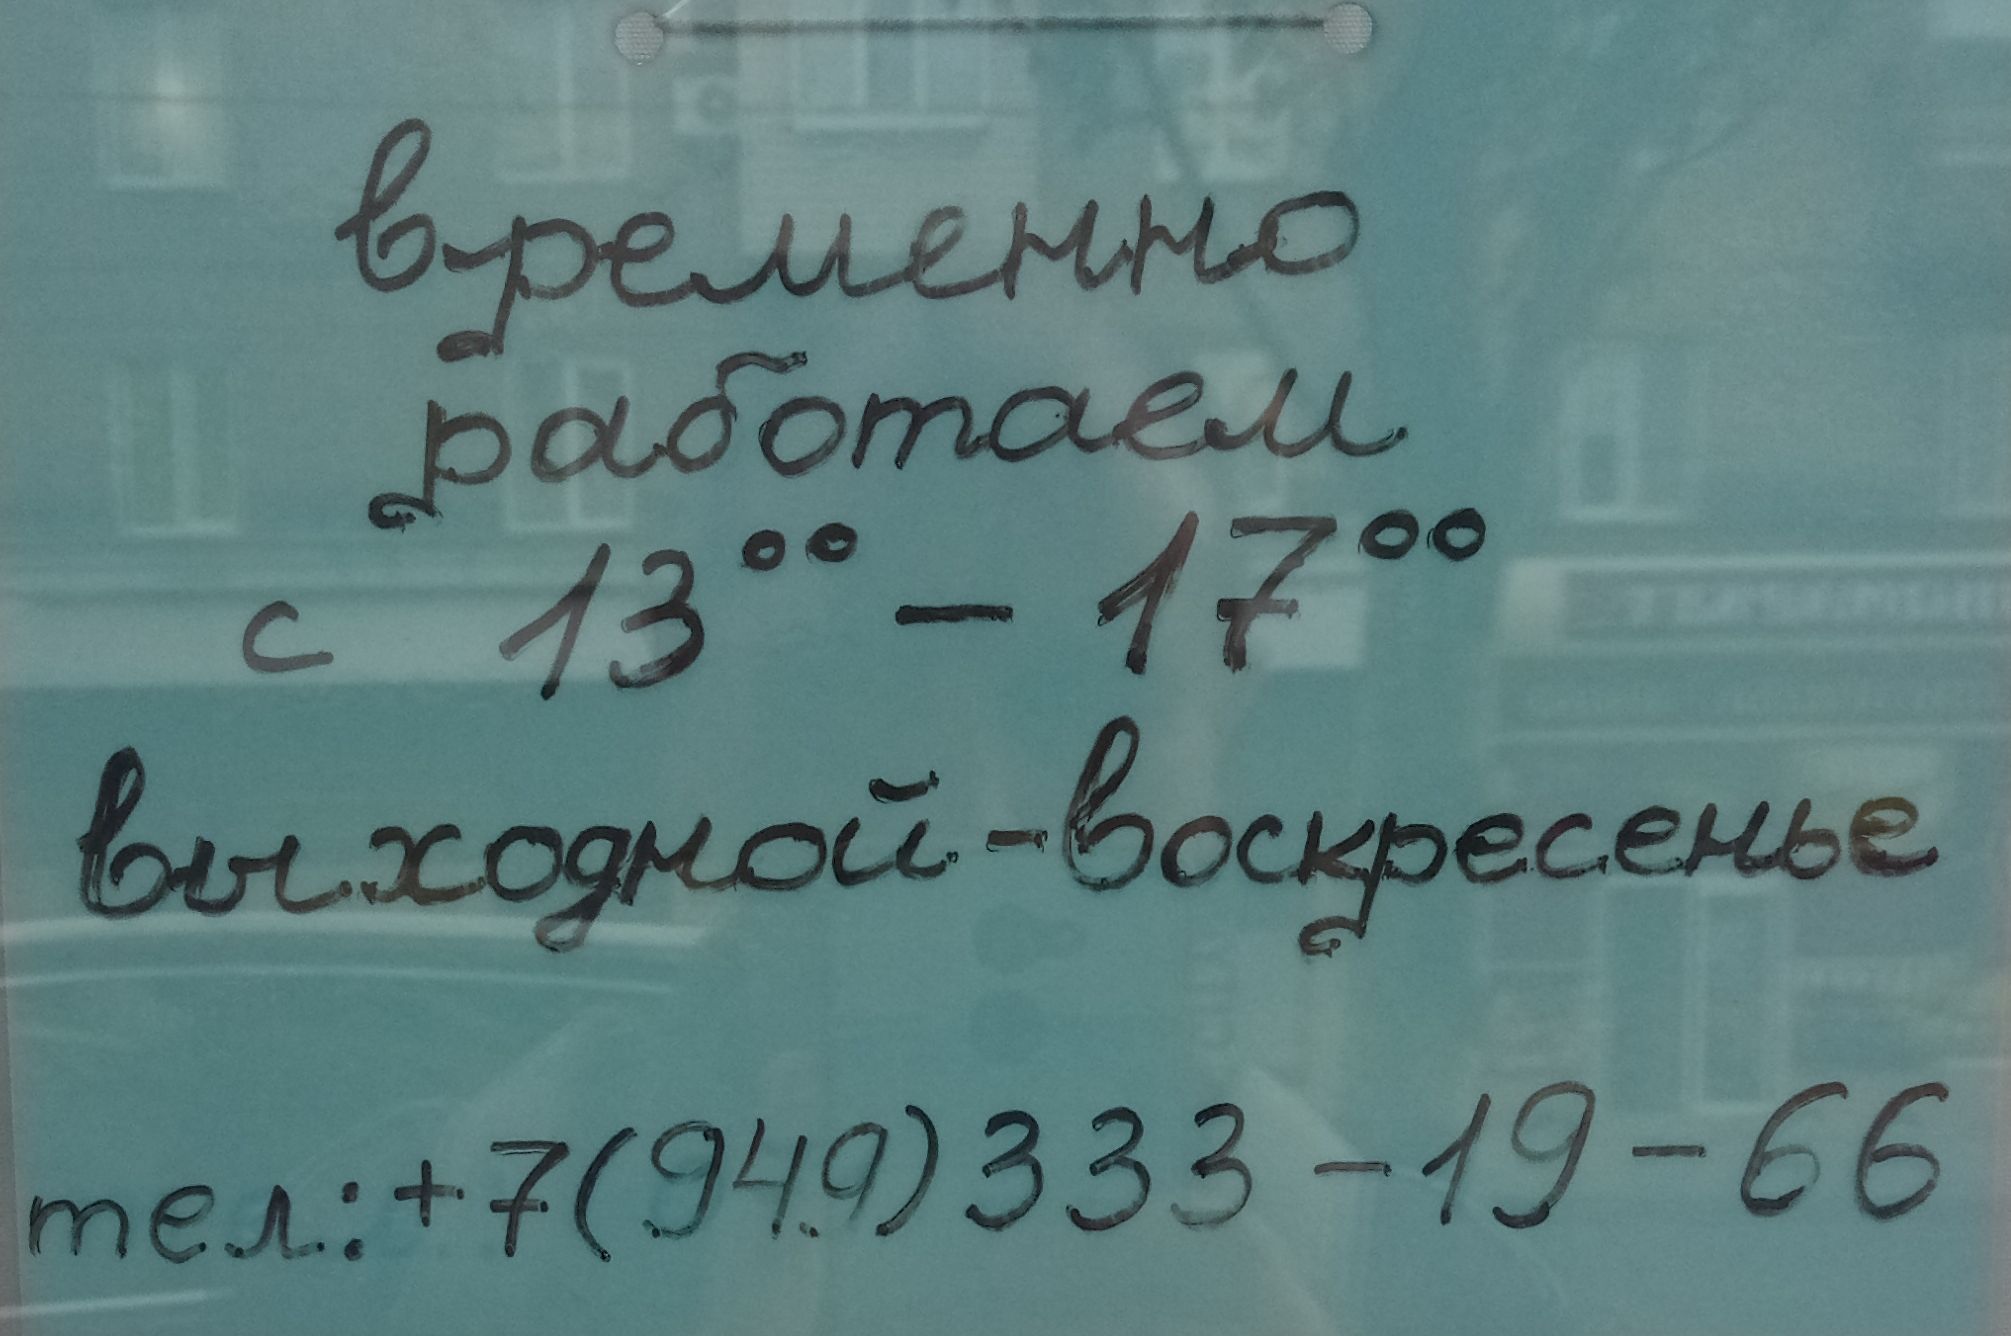 временно
работаем
с 13⁰⁰ - 17⁰⁰
выходной - воскресенье
тел.: +7(949)333-19-66